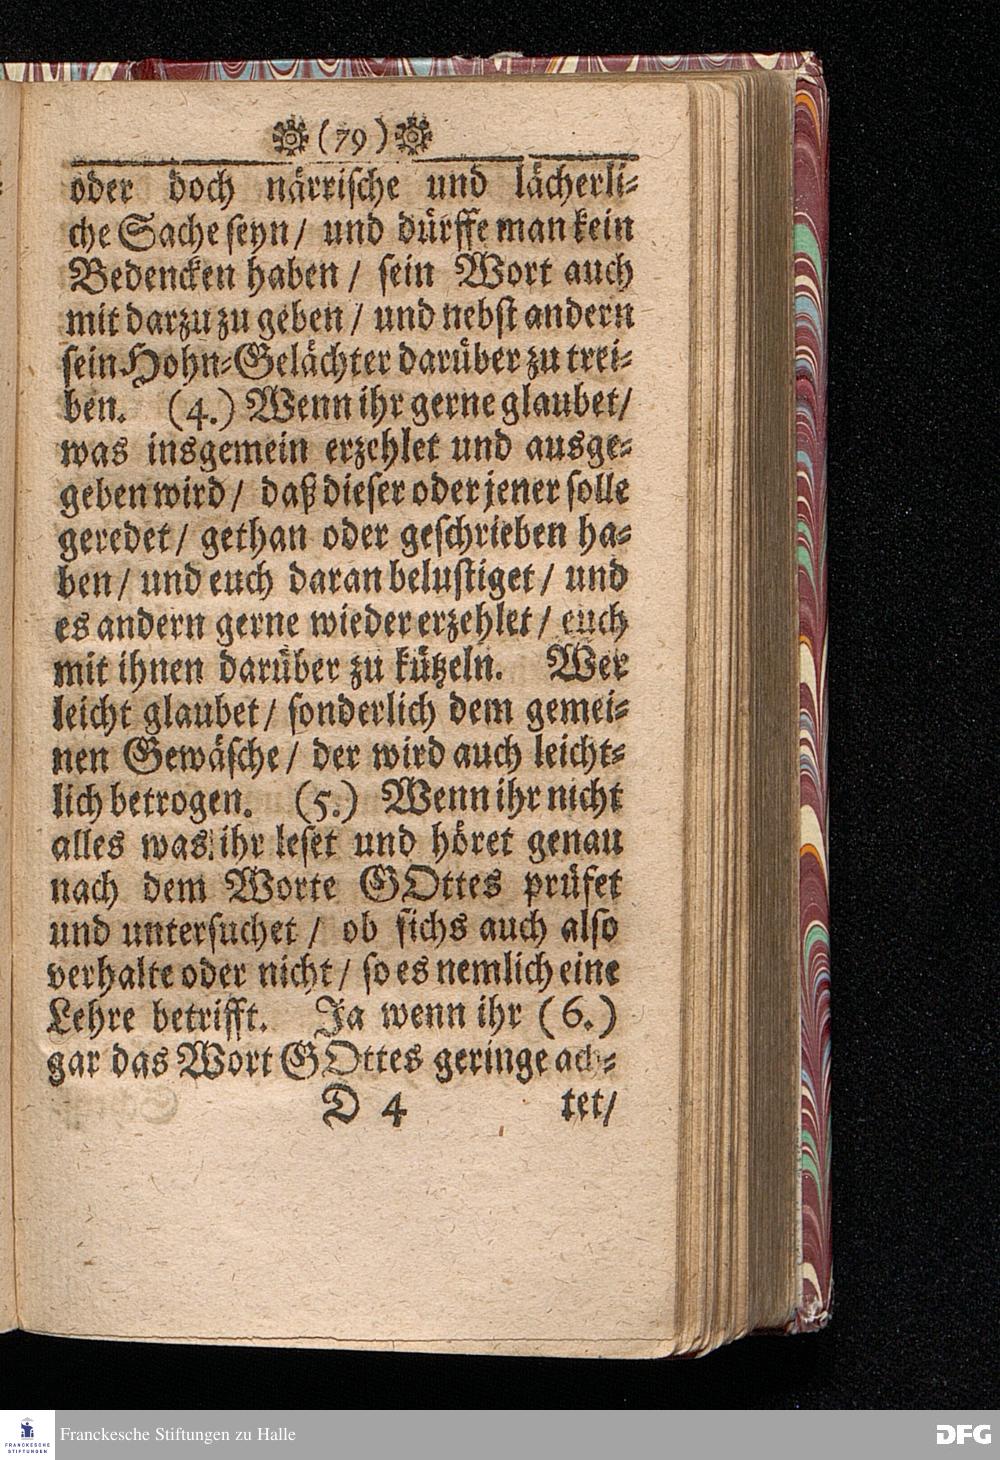 (79)
oder doch närrische und lächerli-
che Sache seyn/ und dürffe man kein
Bedencken haben/ sein Wort auch
mit darzu zu geben/ und nebst andern
sein Hohn-Gelächter darüber zu trei-
ben. (4.) Wenn ihr gerne glaubet/
was insgemein erzehlet und ausge-
geben wird/ daß dieser oder jener solle
geredet/ gethan oder geschrieben ha-
ben/ und euch daran belustiget/ und
es andern gerne wieder erzehlet/ euch
mit ihnen darüber zu kützeln. Wer
leicht glaubet/ sonderlich dem gemei-
nen Gewäsche/ der wird auch leicht-
lich betrogen. (5.) Wenn ihr nicht
alles was ihr leset und höret genau
nach dem Worte GOttes prüfet
und untersuchet/ ob sichs auch also
verhalte oder nicht/ so es nemlich eine
Lehre betrifft. Ja wenn ihr (6.)
gar das Wort GOttes geringe ach-
D 4 tet/
FRANCKESCHE STIFTUNGEN
Franckesche Stiftungen zu Halle
DFG